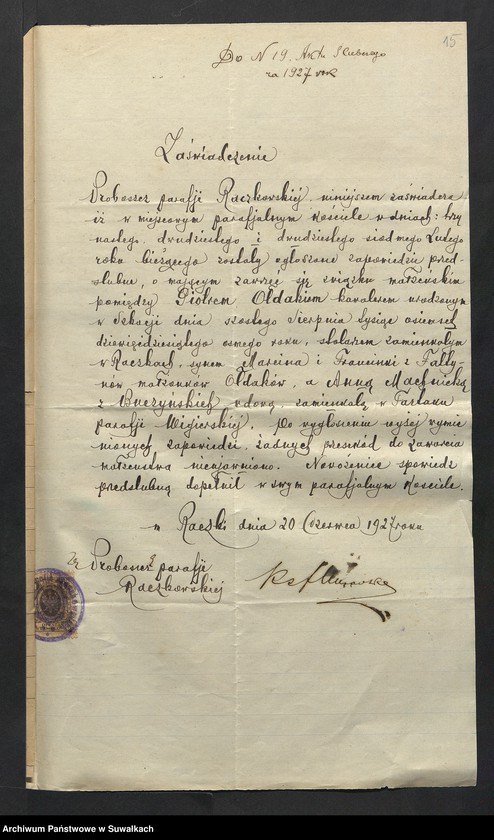 15
Do N 19. Aktu Ślubnego
za 1927 rok
Zaświadczenie
Proboszcz parafji Raczkowskiej niniejszem zaświadcza
iż w miejscowym parafjalnym kościele w dniach: trzy
nastego, dwudziestego i dwudziestego siódmego Lutego
roku bieżącego zostały ogłoszone zapowiedzi przed-
ślubne, o mającym zawrzeć się związku małżeńskim
pomiędzy Piotrem Ołdakiem kawalerem urodzonym
w dnia szóstego Sierpnia tysiąc osiemset
dziewięćdziesiątego ósmego roku, stolarzem zamieszkałym
w Raczkach, synem Marcina i Franciszki z
małżonków Ołdaków, a Anną
z Buczyńskich wdową, zamieszkałą w Tartaku
parafji Wigierskiej. Po wygłoszeniu wyżej wymie
nionych zapowiedzi, żadnych przeszkód do zawarcia
małżeństwa nieujawniono. Nowożeniec spowiedź
przedślubną dopełnił w swym parafjalnym kościele.
w Raczki dnia 20 Czerwca 1927 roku
Za Proboszcz parafji
Raczkowskiej Ks
Archiwum Państwowe w Suwałkach